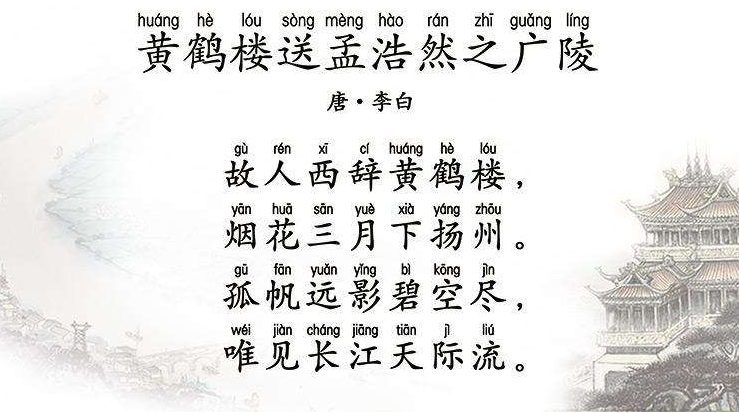 huáng hè lóu sòng mèng hào rán zhī guǎng líng
黄鹤楼送孟浩然之广陵
唐·李白
gù rén xī cí huáng hè lóu
故人西辞黄鹤楼，
yān huā sān yuè xià yáng zhōu
烟花三月下扬州。
gū fān yuǎn yǐng bì kōng jìn
孤帆远影碧空尽，
wéi jiàn cháng jiāng tiān jì liú
唯见长江天际流。